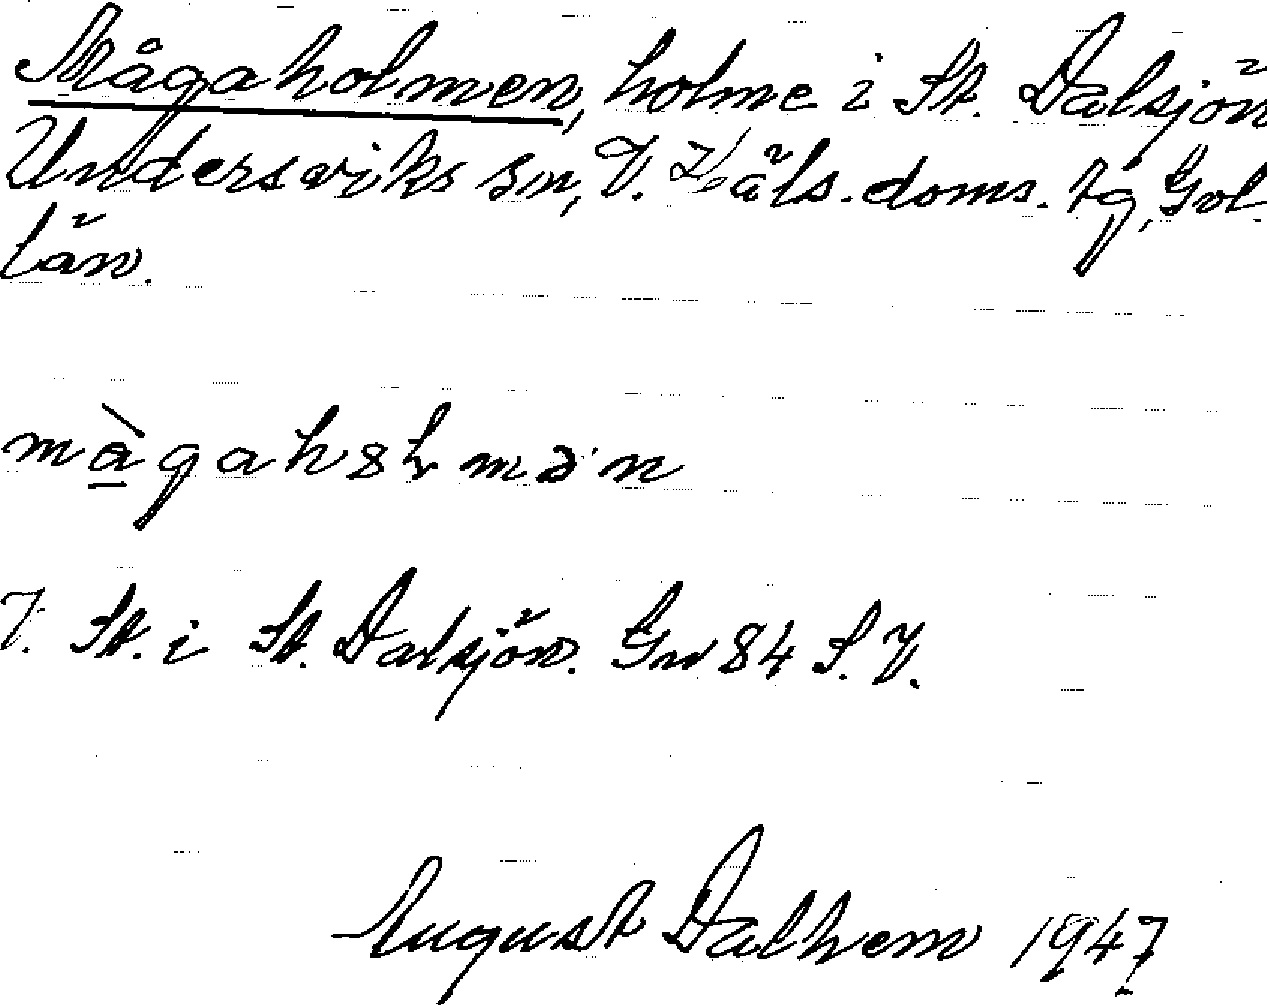 Mågaholmen, holme i St. Dalsjön
Undersviks sn, V. Häls. doms. tg, Gvl.
län.
mågahålmən
T. St. i St. Dalsjön. Gw 84 S.V.
August Dalhem 1947